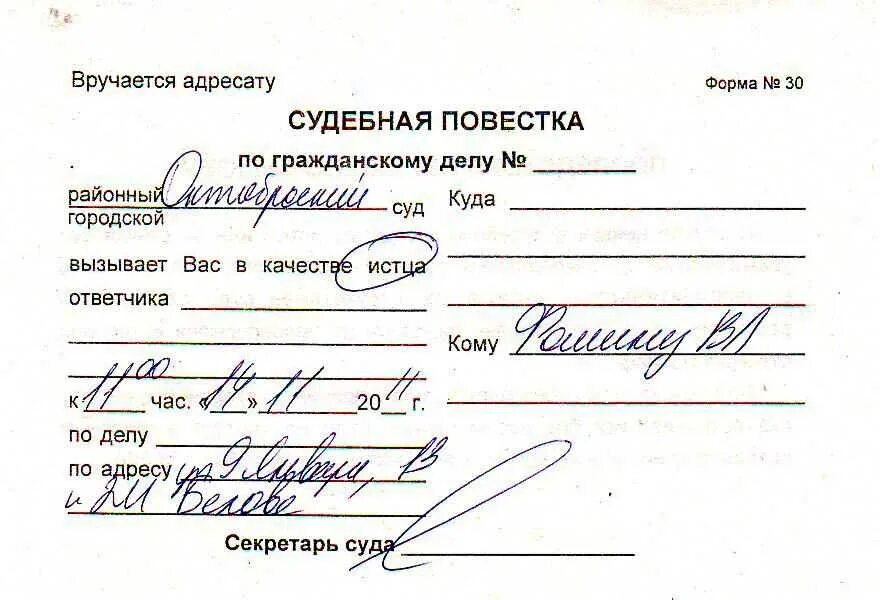 Вручается адресату
Форма № 30
СУДЕБНАЯ ПОВЕСТКА
по гражданскому делу №
районный Октябрьский суд
городской
вызывает Вас в качестве истца
ответчика
к 11 00 час. «14» 11 2011 г.
по делу
по адресу ул 9 Января, 13
Белова
Куда
Кому Фомину ВЛ
Секретарь суда